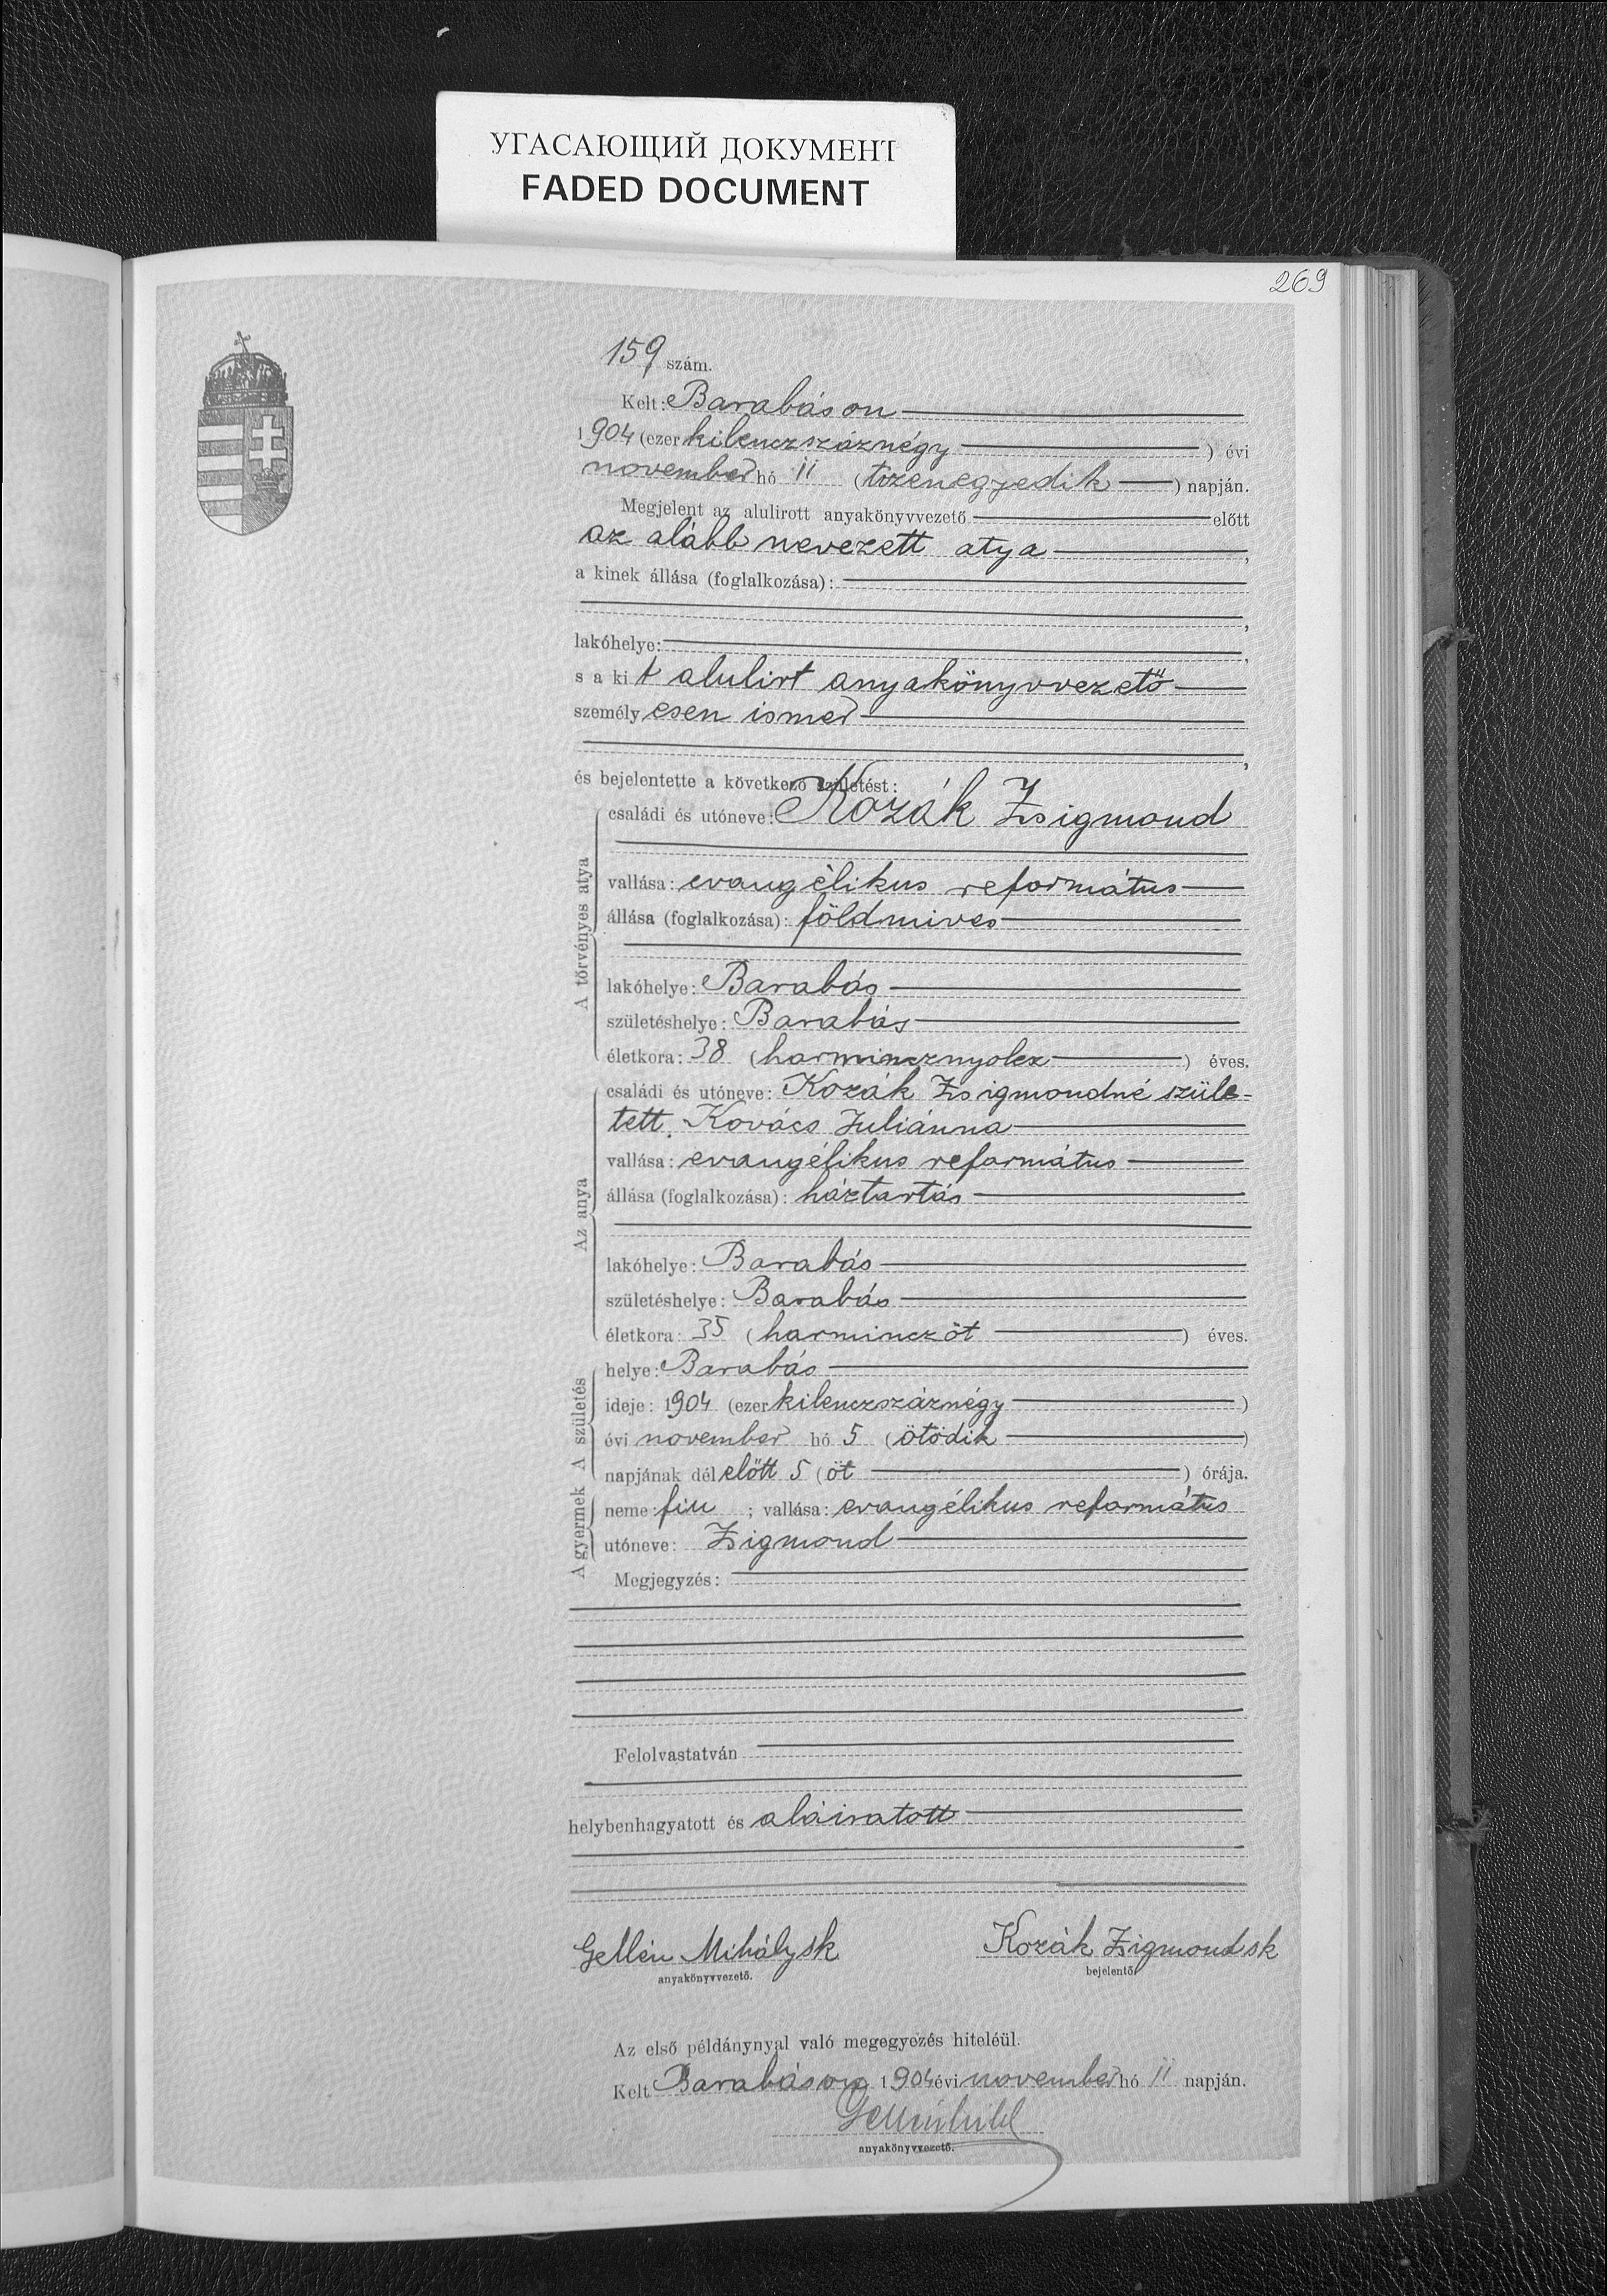 УГАСАЮЩИЙ ДОКУМЕНТ
FADED DOCUMENT
269
159 szám.
Kelt: Barabáson
1904 (ezer kilenczszáznégy) évi
november hó 11 (tizenegyedik) napján.
Megjelent az alulirott anyakönyvvezető előtt
az alább nevezett atya,
a kinek állása (foglalkozása):
,
lakóhelye: ,
s a kit alulirt anyakönyvvezető
személyesen ismer
,
és bejelentette a következő születést:
A törvényes atya
családi és utóneve: Kozák Zsigmond
vallása: evangélikus református
állása (foglalkozása): földmives
lakóhelye: Barabás
születéshelye: Barabás
életkora: 38 (harmincznyolcz) éves.
Az anya
családi és utóneve: Kozák Zsigmondné szüle-
tett Kovács Juliánna
vallása: evangélikus református
állása (foglalkozása): háztartás
lakóhelye: Barabás
születéshelye: Barabás
életkora: 35 (harminczöt) éves.
A születés
helye: Barabás
ideje: 1904 (ezer kilenczszáznégy)
évi november hó 5 (ötödik)
napjának délelőtt 5 (öt) órája.
A gyermek
neme: fiu; vallása: evangélikus református
utóneve: Zsigmond
Megjegyzés:
Felolvastatván
helybenhagyatott és aláiratott
Gellén Mihály sk
anyakönyvvezető.
Kozák Zsigmond sk
bejelentő.
Az első példánynyal való megegyezés hiteléül.
Kelt Barabáson 1904 évi november hó 11 napján.
anyakönyvvezető.